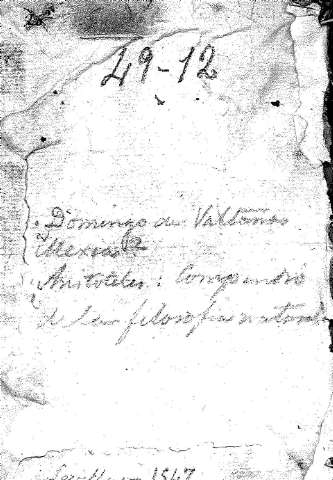 49-12
Domingo de Valtanas
Mexia
Aristoteles: Compendio
de la filosofia natural
Sevilla 1547